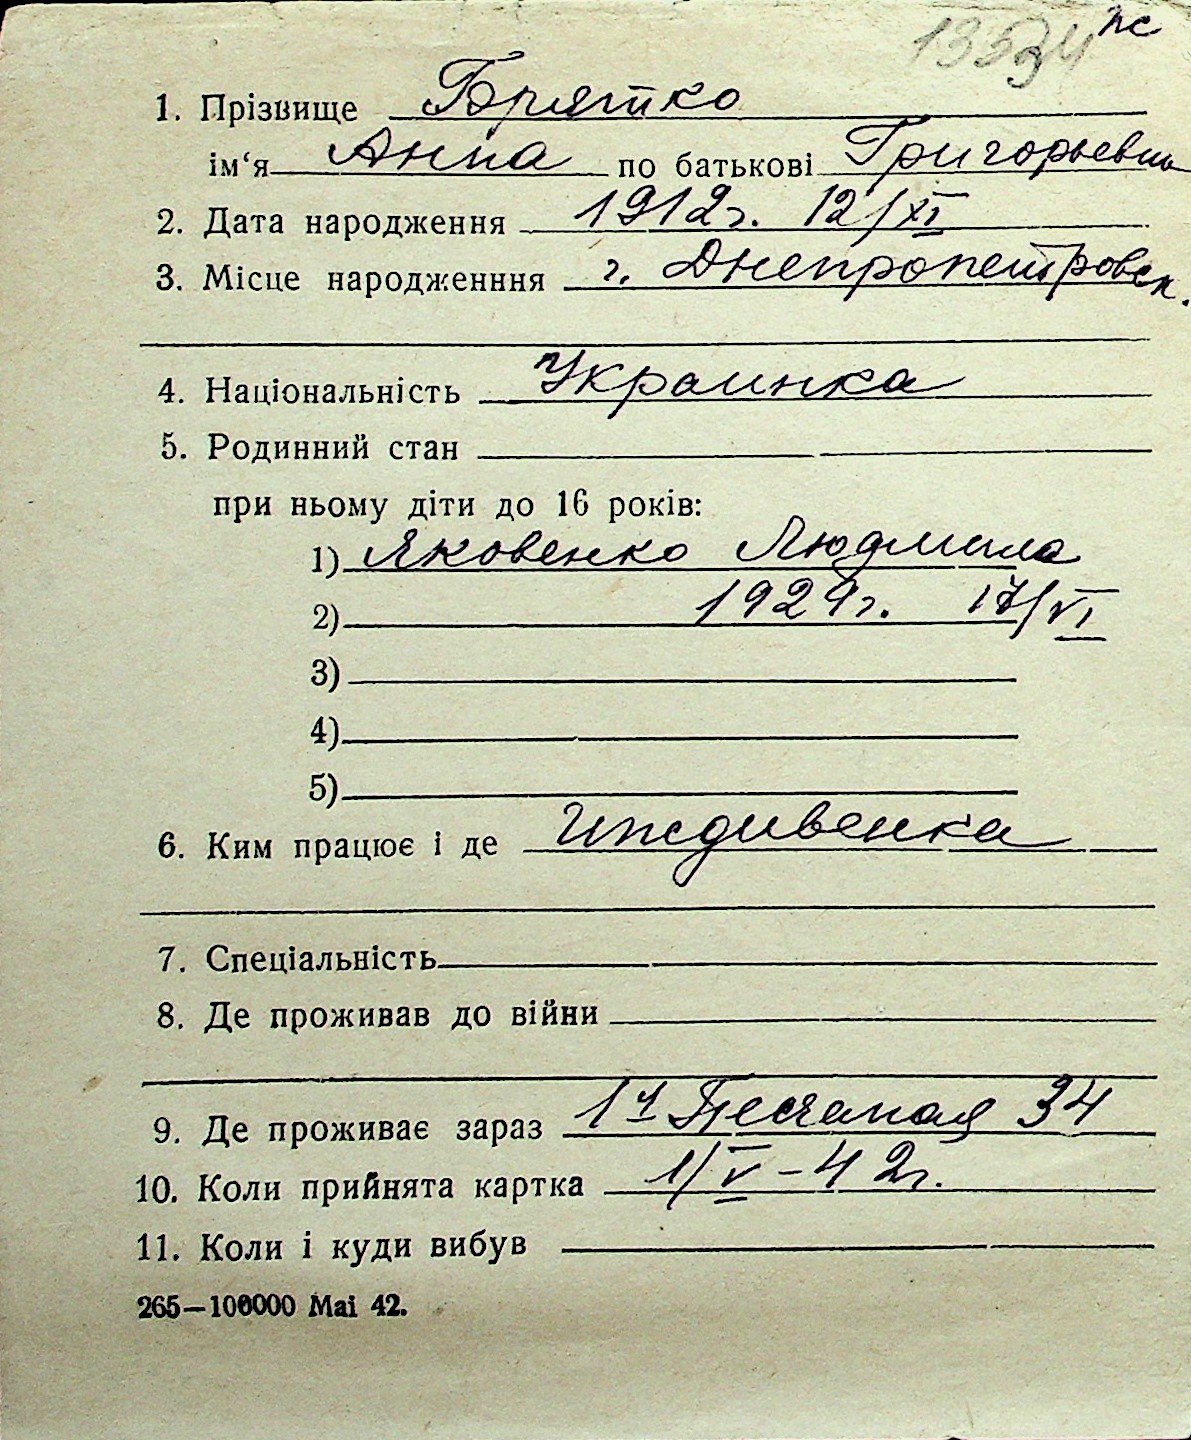 пс
1. Прізвище Брятко
ім‘я Анна по батькові Григорьевна
2. Дата народження 1912г. 12/XI
3. Місце народженння г. Днепропетровск.
4. Національність Украинка
5. Родинний стан
при ньому діти до 16 років:
1) Яковенко Людмила
2) 1929г. 17/VI
3)
4)
5)
6. Ким працює і де Иждивенка
7. Спеціальність
8. Де проживав до війни
9. Де проживає зараз 1я Песчаная 34
10. Коли прийнята картка 1/V-42г.
11. Коли і куди вибув
265—100000 Mai 42.